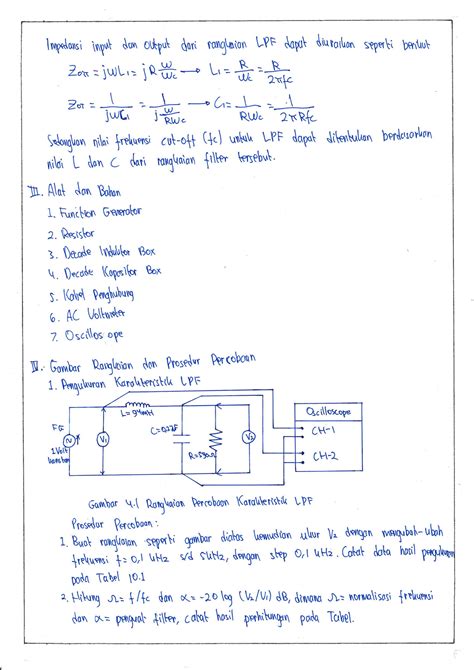 Impedansi input dan output dari rangkaian LPF dapat diuraikan seperti berikut
Zor = jωL1 = jR ω/ωc → L1 = R/ωc = R/2πfc
Zor = 1/jωC1 = 1/(j ω/Rωc) → C1 = 1/Rωc = 1/2πRfc
Sedangkan nilai frekuensi cut-off (fc) untuk LPF dapat ditentukan berdasarkan
nilai L dan C dari rangkaian filter tersebut.
III. Alat dan Bahan
1. Function Generator
2. Resistor
3. Decade Induktor Box
4. Decade Kapasitor Box
5. Kabel Penghubung
6. AC Voltmeter
7. Oscilloscope
IV. Gambar Rangkaian dan Prosedur Percobaan
1. Pengukuran Karakteristik LPF
FG
1 Volt
konstan
V1
L=
C=
R=
V2
Oscilloscope
CH-1
CH-2
Gambar 4.1 Rangkaian Percobaan Karakteristik LPF
Prosedur Percobaan :
1. Buat rangkaian seperti gambar diatas kemudian ukur V2 dengan mengubah-ubah
frekuensi f = 0,1 kHz s/d 5kHz, dengan step 0,1 kHz. Catat data hasil pengukuran
pada Tabel 10.1
2. Hitung Ω = f/fc dan α = -20 log (V2/V1) dB, dimana Ω = normalisasi frekuensi
dan α = penguat filter, catat hasil perhitungan pada Tabel.